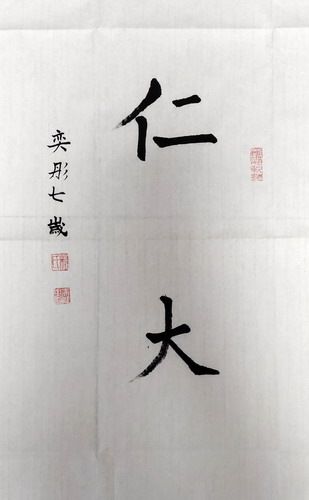 仁大
奕彤七歲